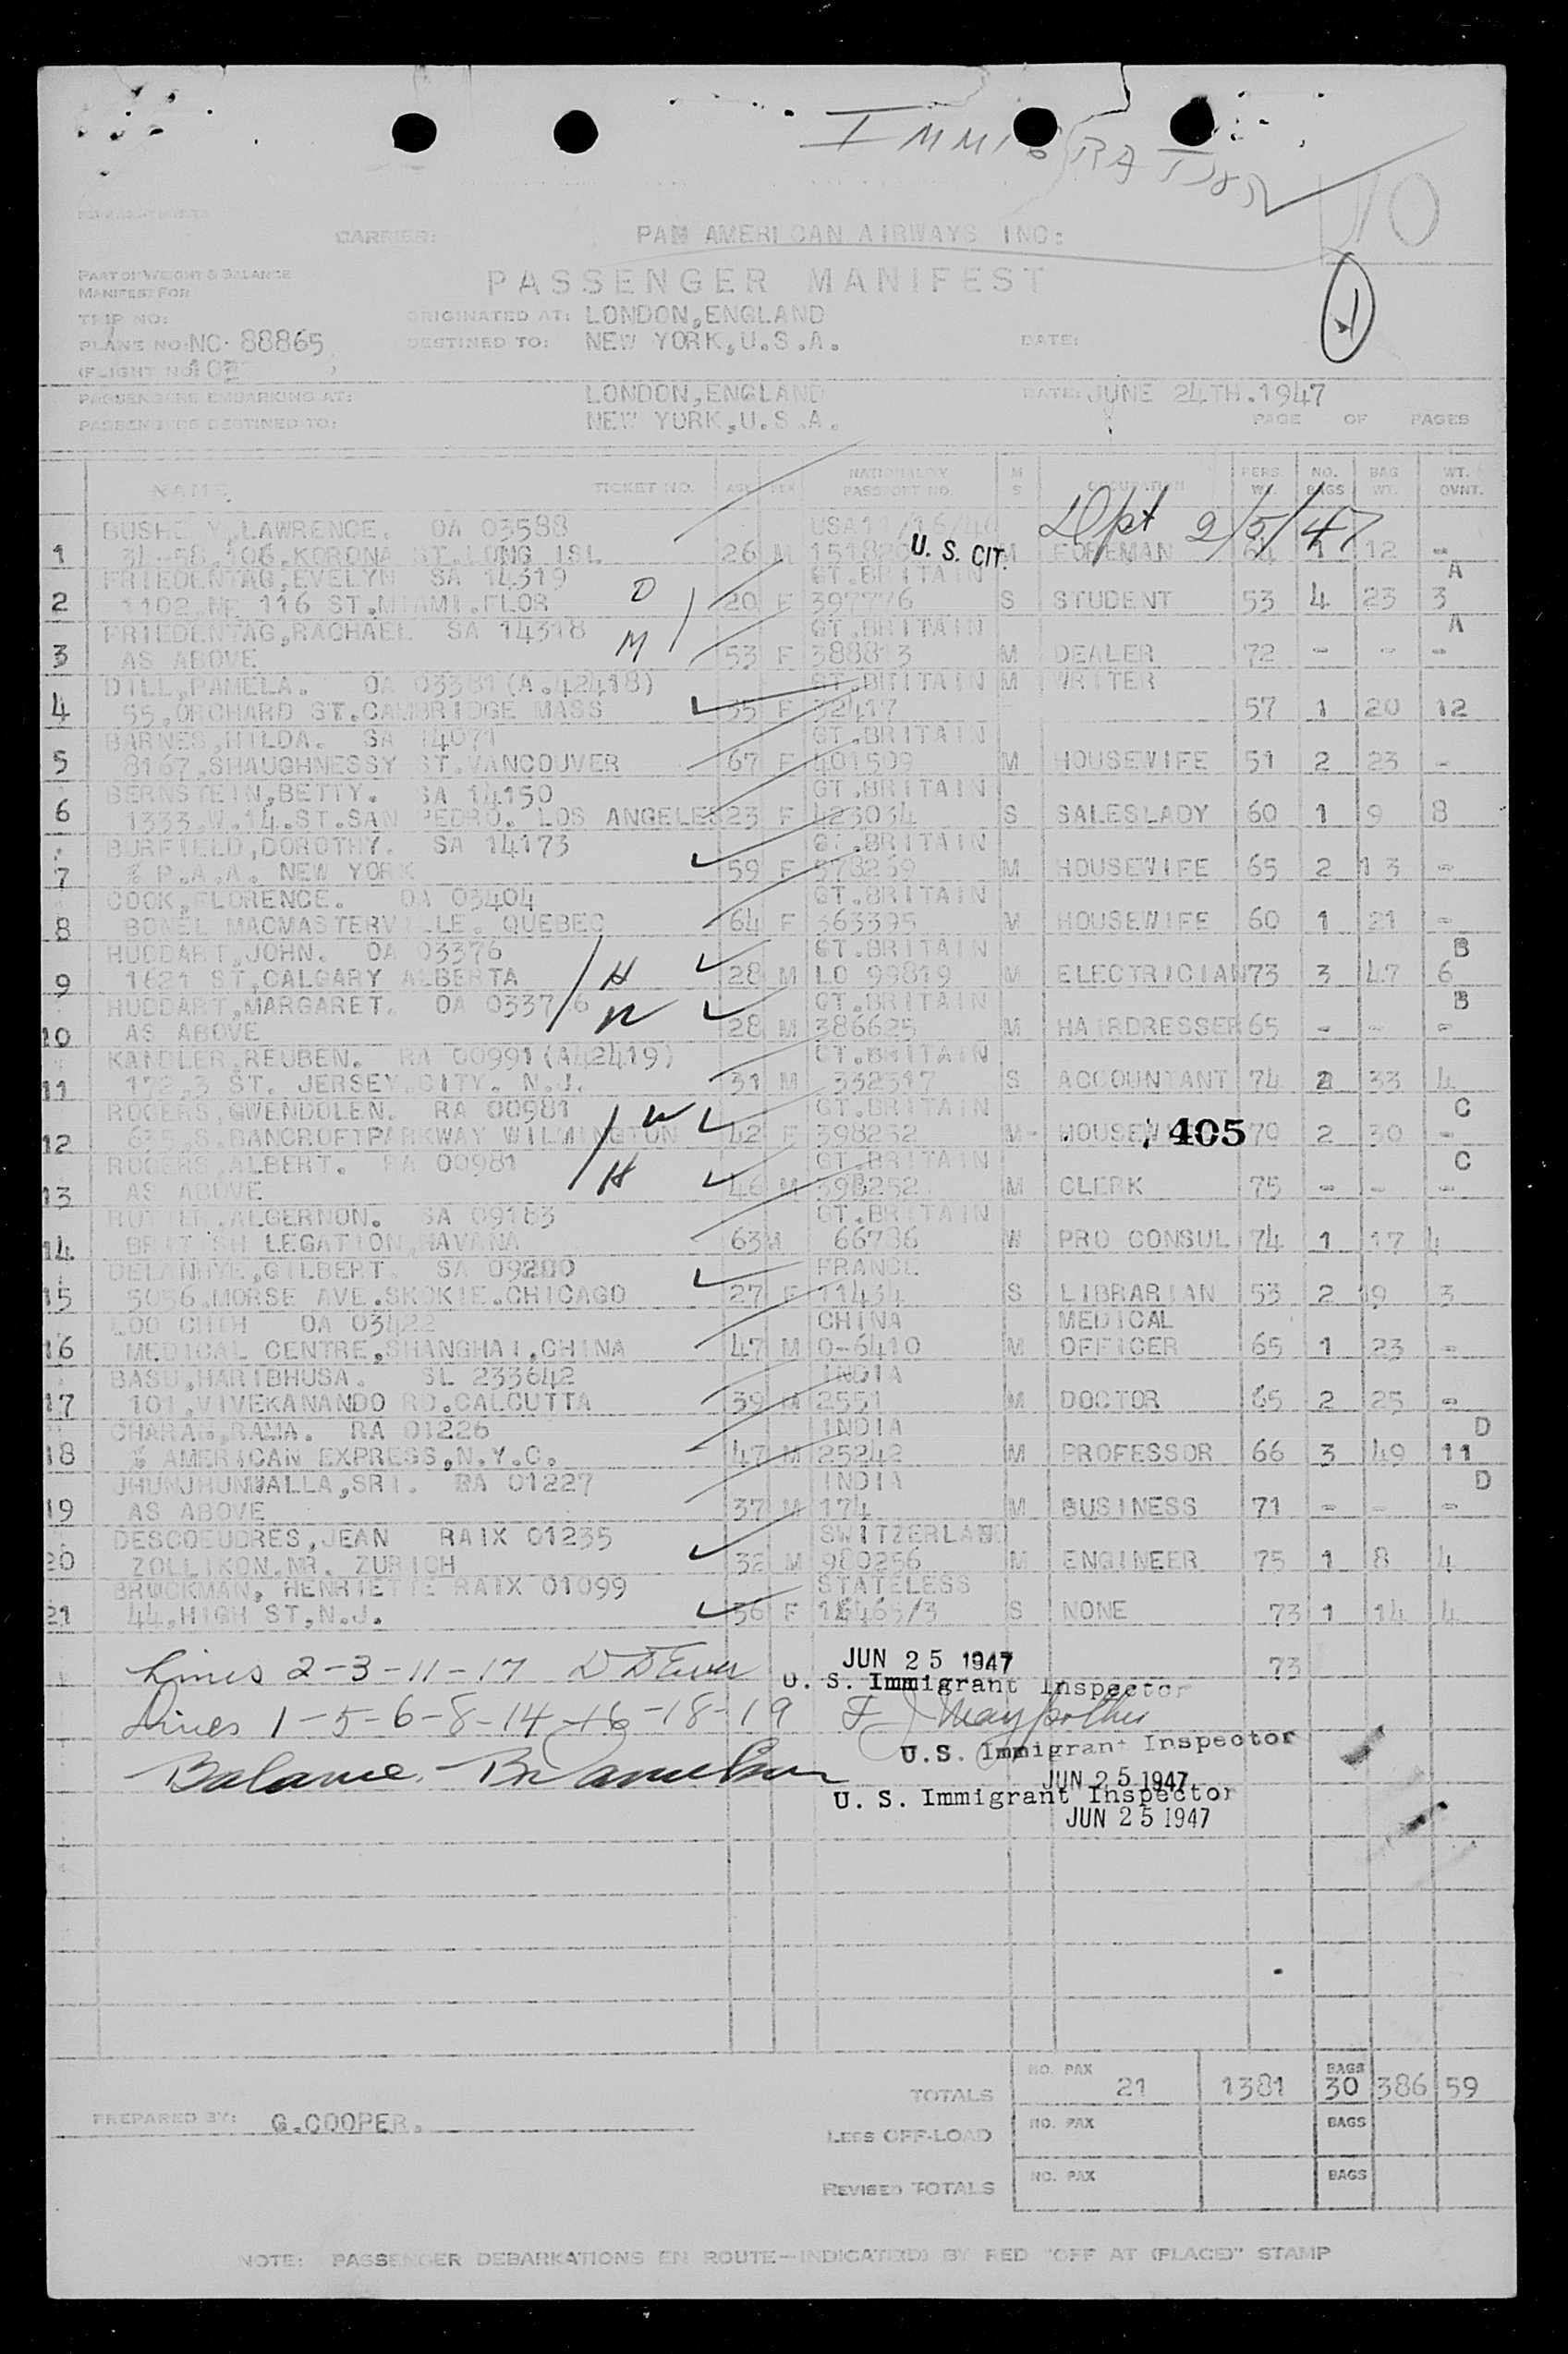 IMMIGRATION
10
CARRIER: PAN AMERICAN AIRWAYS INC:
PART OF WEIGHT & BALANCE
MANIFEST FOR
PASSENGER MANIFEST
TRIP NO: ORIGINATED AT: LONDON,ENGLAND
PLANE NO: NC- 88865 DESTINED TO: NEW YORK,U.S.A. DATE:
(FLIGHT NO: )
PASSENGERS EMBARKING AT: LONDON,ENGLAND DATE: JUNE 24TH.1947
PASSENGERS DESTINED TO: NEW YORK,U.S.A. PAGE OF PAGES
NAME TICKET NO. AGE SEX NATIONALITY PASSPORT NO. M S OCCUPATION PERS. WT. NO. BAGS BAG WT. WT. OVNT.
Dpt 2/5/47
LAWRENCE. OA 03588
1 ST.LONG ISL 26 M U. S. CIT. M 1 12 -
FRIEDENTAG,EVELYN SA 14319 D GT.BRITAIN A
2 1102.NE 116 ST.MIAMI.FLOR 20 F 397776 S STUDENT 53 4 23 3
FRIEDENTAG,RACHAEL SA 14318 M GT.BRITAIN A
3 AS ABOVE 53 F 388813 M DEALER 72 - - -
DILL,PAMELA. OA 03381(A.42418) GT.BRITAIN M WRITER
4 55,ORCHARD ST.CAMBRIDGE MASS 35 F 32417 57 1 20 12
BARNES,HILDA. SA 14071 GT.BRITAIN
5 8167,SHAUGHNESSY ST.VANCOUVER 67 F 401509 M HOUSEWIFE 51 2 23 -
BERNSTEIN,BETTY. SA 14150 GT.BRITAIN
6 1333.W.14.ST.SAN PEDRO. LOS ANGELES 23 F 423034 S SALESLADY 60 1 9 8
BURFIELD,DOROTHY. SA 14173 GT.BRITAIN
7 % P.A.A. NEW YORK 59 F 378269 M HOUSEWIFE 65 2 13 -
COOK,FLORENCE. OA 03404 GT.BRITAIN
8 QUEBEC 64 F 363395 M HOUSEWIFE 60 1 21 -
HUDDART,JOHN. OA 03376 GT.BRITAIN B
9 1621 ST,CALGARY ALBERTA H 28 M LO 99819 M ELECTRICIAN 73 3 47 6
HUDDART,MARGARET. OA 03376 GT.BRITAIN B
10 AS ABOVE 28 M 386625 M HAIRDRESSER 65 - - -
KANDLER,REUBEN. RA 00991(A42419) GT.BRITAIN
11 172,3 ST. JERSEY.CITY. N.J. 31 M 332317 S ACCOUNTANT 74 2 33 4
ROGERS,GWENDOLEN. RA 00981 W GT.BRITAIN C
12 BANCROFTPARKWAY WILMINGTON 42 F 398252 M 405 70 2 30 -
ROGERS ALBERT. RA 00981 GT.BRITAIN C
13 AS ABOVE H 46 M 398252 M CLERK 75 - - -
ALGERNON. SA 09183 GT.BRITAIN
14 BRITISH LEGATION HAVANA 63 M 66786 W PRO CONSUL 74 1 17 4
GILBERT. SA 09280 FRANCE
15 5056.MORSE AVE.SKOKIE.CHICAGO 27 F 11434 S LIBRARIAN 53 2 19 3
LOO CHIH OA 03422 CHINA MEDICAL
16 MEDICAL CENTRE,SHANGHAI,CHINA 47 M O-6410 M OFFICER 65 1 23 -
BASU,HARIBHUSA. SL 233642 INDIA
17 101,VIVEKANANDO RD.CALCUTTA 39 M 2551 M DOCTOR 65 2 25 -
RAMA. RA 01226 INDIA D
18 % AMERICAN EXPRESS,N.Y.C. 47 M 25242 M PROFESSOR 66 3 49 11
JHUNJHUNWALLA,SRI. RA 01227 INDIA D
19 AS ABOVE 37 M 174 M BUSINESS 71 - - -
DESCOEUDRES,JEAN RAIX 01235 SWITZERLAND
20 ZOLLIKON.NR. ZURICH 32 M 980256 M ENGINEER 75 1 8 4
BRUCKMAN, HENRIETTE RAIX 01099 STATELESS
21 44,HIGH ST,N.J. 56 F S NONE 73 1 14 4
73
Lines 2-3-11-17
JUN 25 1947
U. S. Immigrant Inspector
Lines 1-5-6-8-14-16-18-19
U.S. Immigrant Inspector
JUN 25 1947
Balance
U. S. Immigrant Inspector
JUN 25 1947
TOTALS NO. PAX 21 1381 BAGS 30 386 59
PREPARED BY: G.COOPER.
LESS OFF-LOAD NO. PAX BAGS
REVISED TOTALS NO. PAX BAGS
NOTE: PASSENGER DEBARKATIONS EN ROUTE—INDICATE(D) BY RED "OFF AT (PLACE)" STAMP